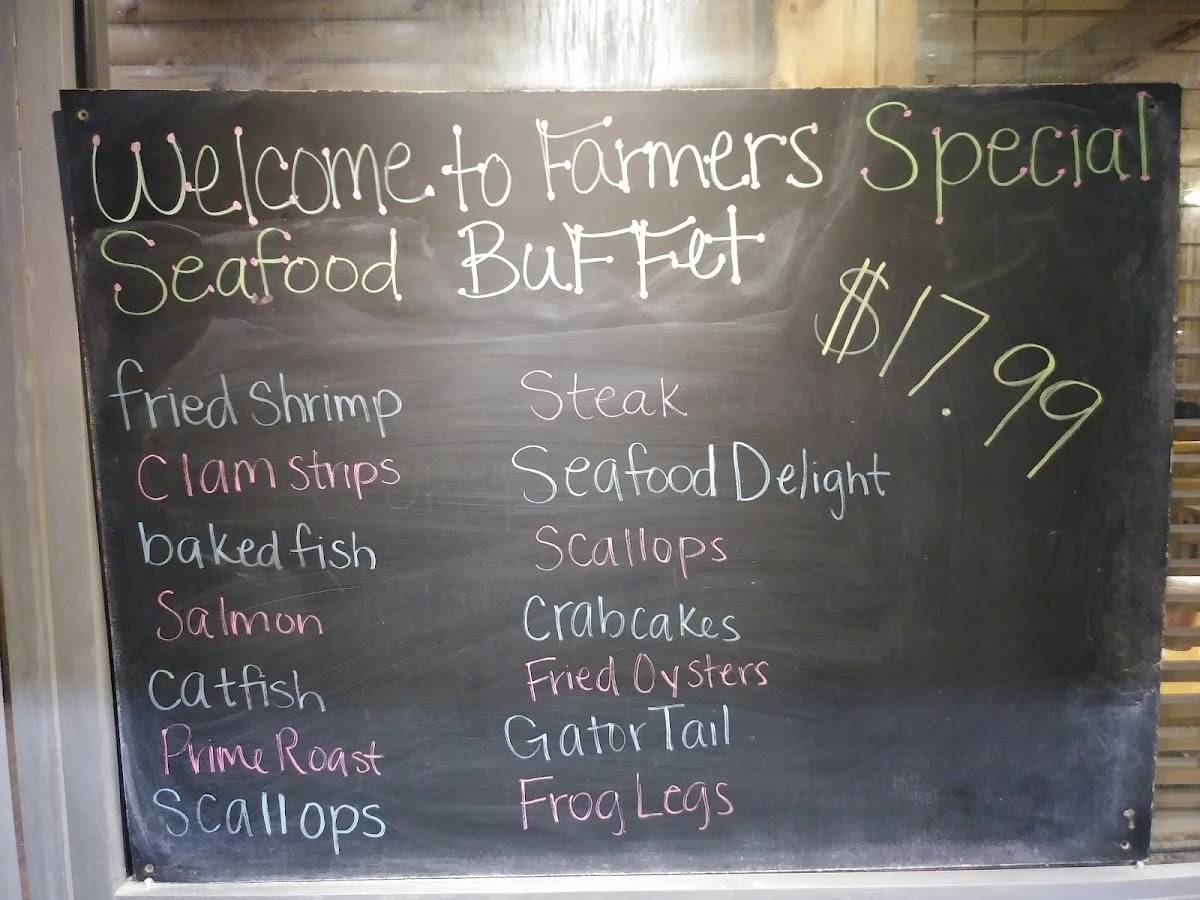 Welcome to Farmers Special
Seafood BuFFet
$17.99
fried Shrimp
Clam Strips
baked fish
Salmon
Catfish
Prime Roast
Scallops
Steak
Seafood Delight
Scallops
Crabcakes
Fried Oysters
Gator Tail
Frog Legs